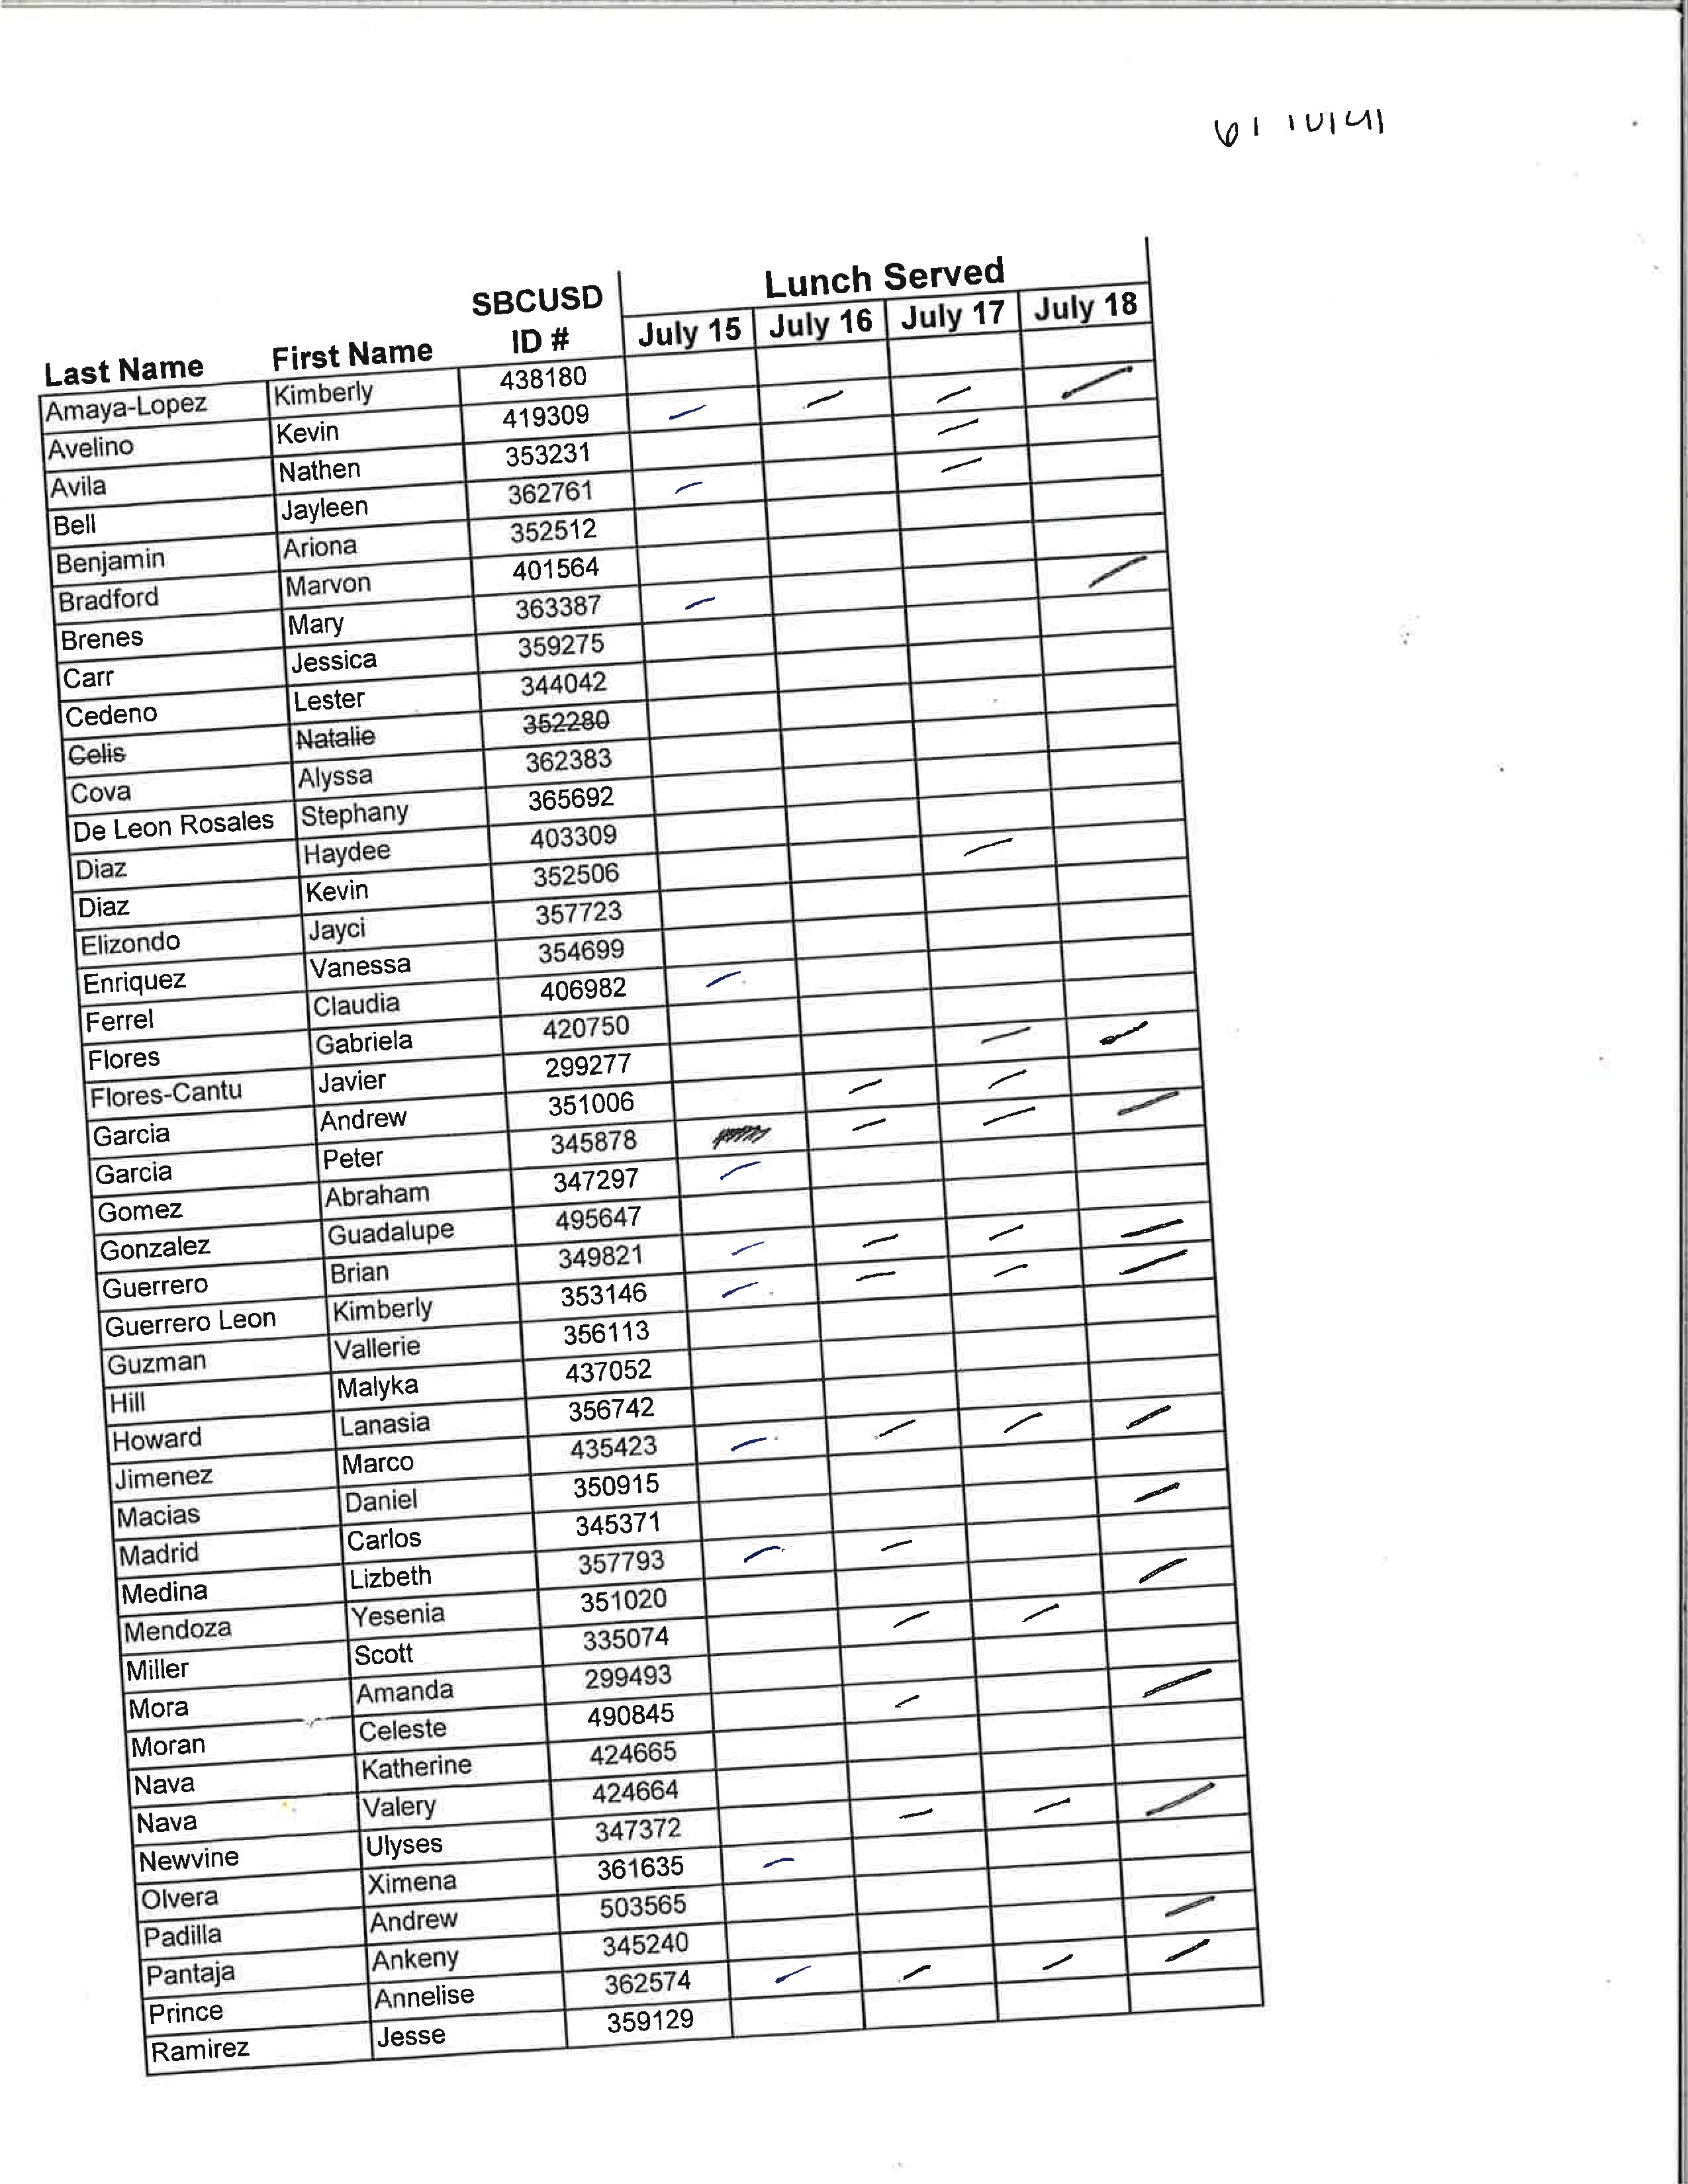 Lunch Served
SBCUSD
Last Name First Name ID # July 15 July 16 July 17 July 18
Amaya-Lopez Kimberly 438180
Avelino Kevin 419309
Avila Nathen 353231
Bell Jayleen 362761
Benjamin Ariona 352512
Bradford Marvon 401564
Brenes Mary 363387
Carr Jessica 359275
Cedeno Lester 344042
Celis Natalie 352280
Cova Alyssa 362383
De Leon Rosales Stephany 365692
Diaz Haydee 403309
Diaz Kevin 352506
Elizondo Jayci 357723
Enriquez Vanessa 354699
Ferrel Claudia 406982
Flores Gabriela 420750
Flores-Cantu Javier 299277
Garcia Andrew 351006
Garcia Peter 345878
Gomez Abraham 347297
Gonzalez Guadalupe 495647
Guerrero Brian 349821
Guerrero Leon Kimberly 353146
Guzman Vallerie 356113
Hill Malyka 437052
Howard Lanasia 356742
Jimenez Marco 435423
Macias Daniel 350915
Madrid Carlos 345371
Medina Lizbeth 357793
Mendoza Yesenia 351020
Miller Scott 335074
Mora Amanda 299493
Moran Celeste 490845
Nava Katherine 424665
Nava Valery 424664
Newvine Ulyses 347372
Olvera Ximena 361635
Padilla Andrew 503565
Pantaja Ankeny 345240
Prince Annelise 362574
Ramirez Jesse 359129